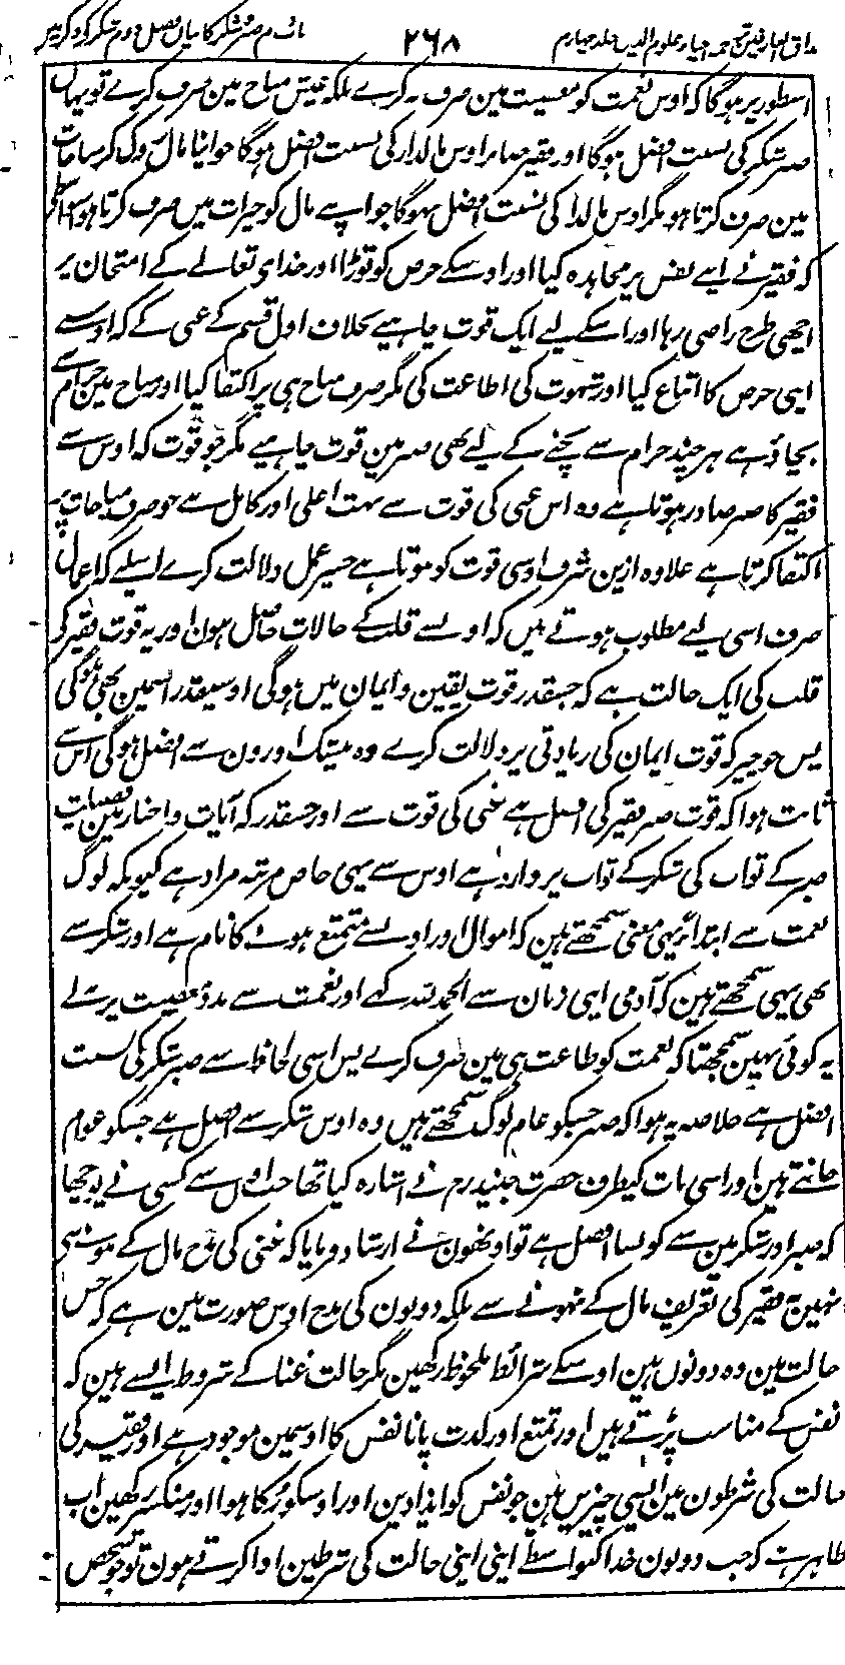 مذاق العارفین ترجمہ احیاء علوم الدین جلد چہارم ۲۶۸ باب دوم صبر و شکر کا بیان فصل دوم شکر کے ذکر میں
اسطور پر ہوگا کہ اوس نعمت کو معصیت مین صرف نہ کرے بلکہ عیش مباح مین صرف کرے تو یہاں
صبر شکر کی نسبت افضل ہوگا اور فقیر صابر اوس مالدار کی نسبت افضل ہوگا جو اپنا مال روک کر مباحات
مین صرف کرتا ہو مگر اوس مالدار کی نسبت افضل نہوگا جو اپنے مال کو خیرات میں صرف کرتا ہو اسواسطے
کہ فقیر نے اپنے نفس پر مجاہدہ کیا اور اوسکے حرص کو توڑا اور خدای تعالے کے امتحان پر
اچھی طرح راضی رہا اور اسکے لیے ایک قوت چاہیے بخلاف اول قسم کے غنی کے کہ اوسنے
اپنی حرص کا اتباع کیا اور شہوت کی اطاعت کی مگر صرف مباح ہی پر اکتفا کیا اور مباح مین حرام سے
بچاؤ ہے ہر چند حرام سے بچنے کے لیے بھی صبر مین قوت چاہیے مگر جو قوت کہ اوس سے
فقیر کا صبر صادر ہوتا ہے وہ اس غنی کی قوت سے بہت اعلی اور کامل ہے جو صرف مباحات پر
اکتفا کرتا ہے علاوہ ازین شرف اوسی قوت کو ہوتا ہے جسپر عمل دلالت کرے اسلیے کہ اعمال
صرف اسی لیے مطلوب ہوتے ہیں کہ اونسے قلب کے حالات حاصل ہون اور یہ قوت فقیر کے
قلب کی ایک حالت ہے کہ جسقدر قوت یقین و ایمان میں ہوگی اوسیقدر اسمین بھی ہوگی
پس جو چیز کہ قوت ایمان کی زیادتی پر دلالت کرے وہ بیشک اورون سے افضل ہوگی اس سے
ثابت ہوا کہ قوت صبر فقیر کی افضل ہے غنی کی قوت سے اور جسقدر کہ آیات و اخبار مین فضیلت
صبر کے ثواب کی شکر کے ثواب پر وارد ہے اوس سے یہی خاص مرتبہ مراد ہے کیونکہ لوگ
نعمت سے ابتداءً یہی معنی سمجھتے ہین کہ اموال اور اونسے متمتع ہونے کا نام ہے اور شکر سے
بھی یہی سمجھتے ہین کہ آدمی اپنی زبان سے الحمد للہ کہے اور نعمت سے مدد معصیت پر نہ لے
یہ کوئی نہین سمجھتا کہ نعمت کو طاعت ہی مین صرف کرے پس اسی لحاظ سے صبر شکر کی نسبت
افضل ہے خلاصہ یہ ہوا کہ صبر جسکو عام لوگ سمجھتے ہیں وہ اوس شکر سے افضل ہے جسکو عوام
جانتے ہین اور اسی بات کیطرف حضرت جنید رح نے اشارہ کیا تھا جب اون سے کسی نے پوچھا
کہ صبر اور شکر مین سے کونسا افضل ہے تو اونھون نے ارشاد فرمایا کہ غنی کی مدح مال کے ہونے سے
نہین نہ فقیر کی تعریف مال کے نہونے سے بلکہ دونون کی مدح اوس صورت مین ہے کہ جس
حالت مین وہ دونوں ہین اوسکے شرائط ملحوظ رکھین مگر حالت غنا کے شروط ایسے ہین کہ
نفس کے مناسب پڑتے ہیں اور تمتع اور لذت پانا نفس کا اوسمین موجود ہے اور فقیر کی
حالت کی شرطون مین ایسی چیزیں ہین جو نفس کو ایذا دین اور اوسکو رُکا ہوا اور منکسر رکھین اب
ظاہر ہے کہ جب دونون خدا کیواسطے اپنی اپنی حالت کی شرطین ادا کرتے ہون تو جو شخص